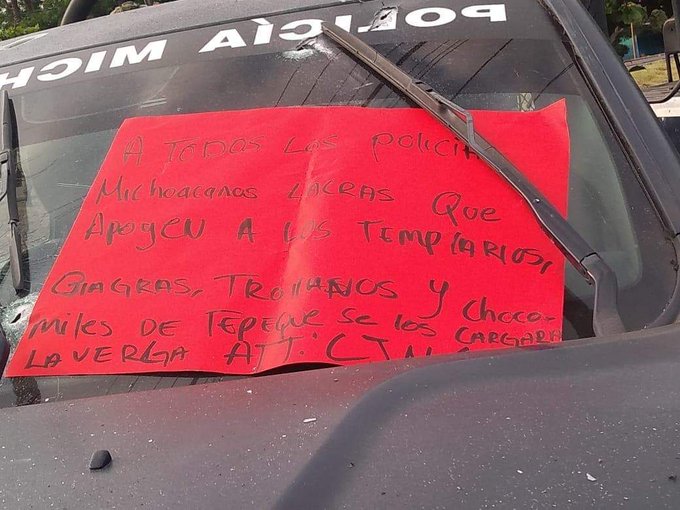 POLICÍA MICH
A TODOS LOS POLICIA
Michoacanos LACRAS QUE
APOyEN A LOS TEMPLARIOS,
VIAGRAS, TROYANOS y choco-
miles DE TEPEQUE se los CARGARA
LA VERGA ATT: CJN